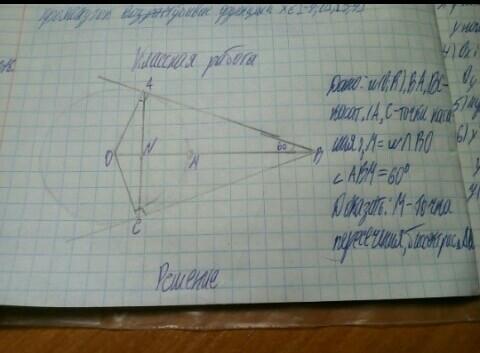 промежуток возрастания функции
Классная работа
A
O
N
M
60
B
C
Дано: w(O;R), BA, BC-
касат., (A, C-точки каса
ния), M = w∩BO
∠ABM=60°
Доказать: M-точка
пересечения биссектрис
Решение
4)
5)
6)